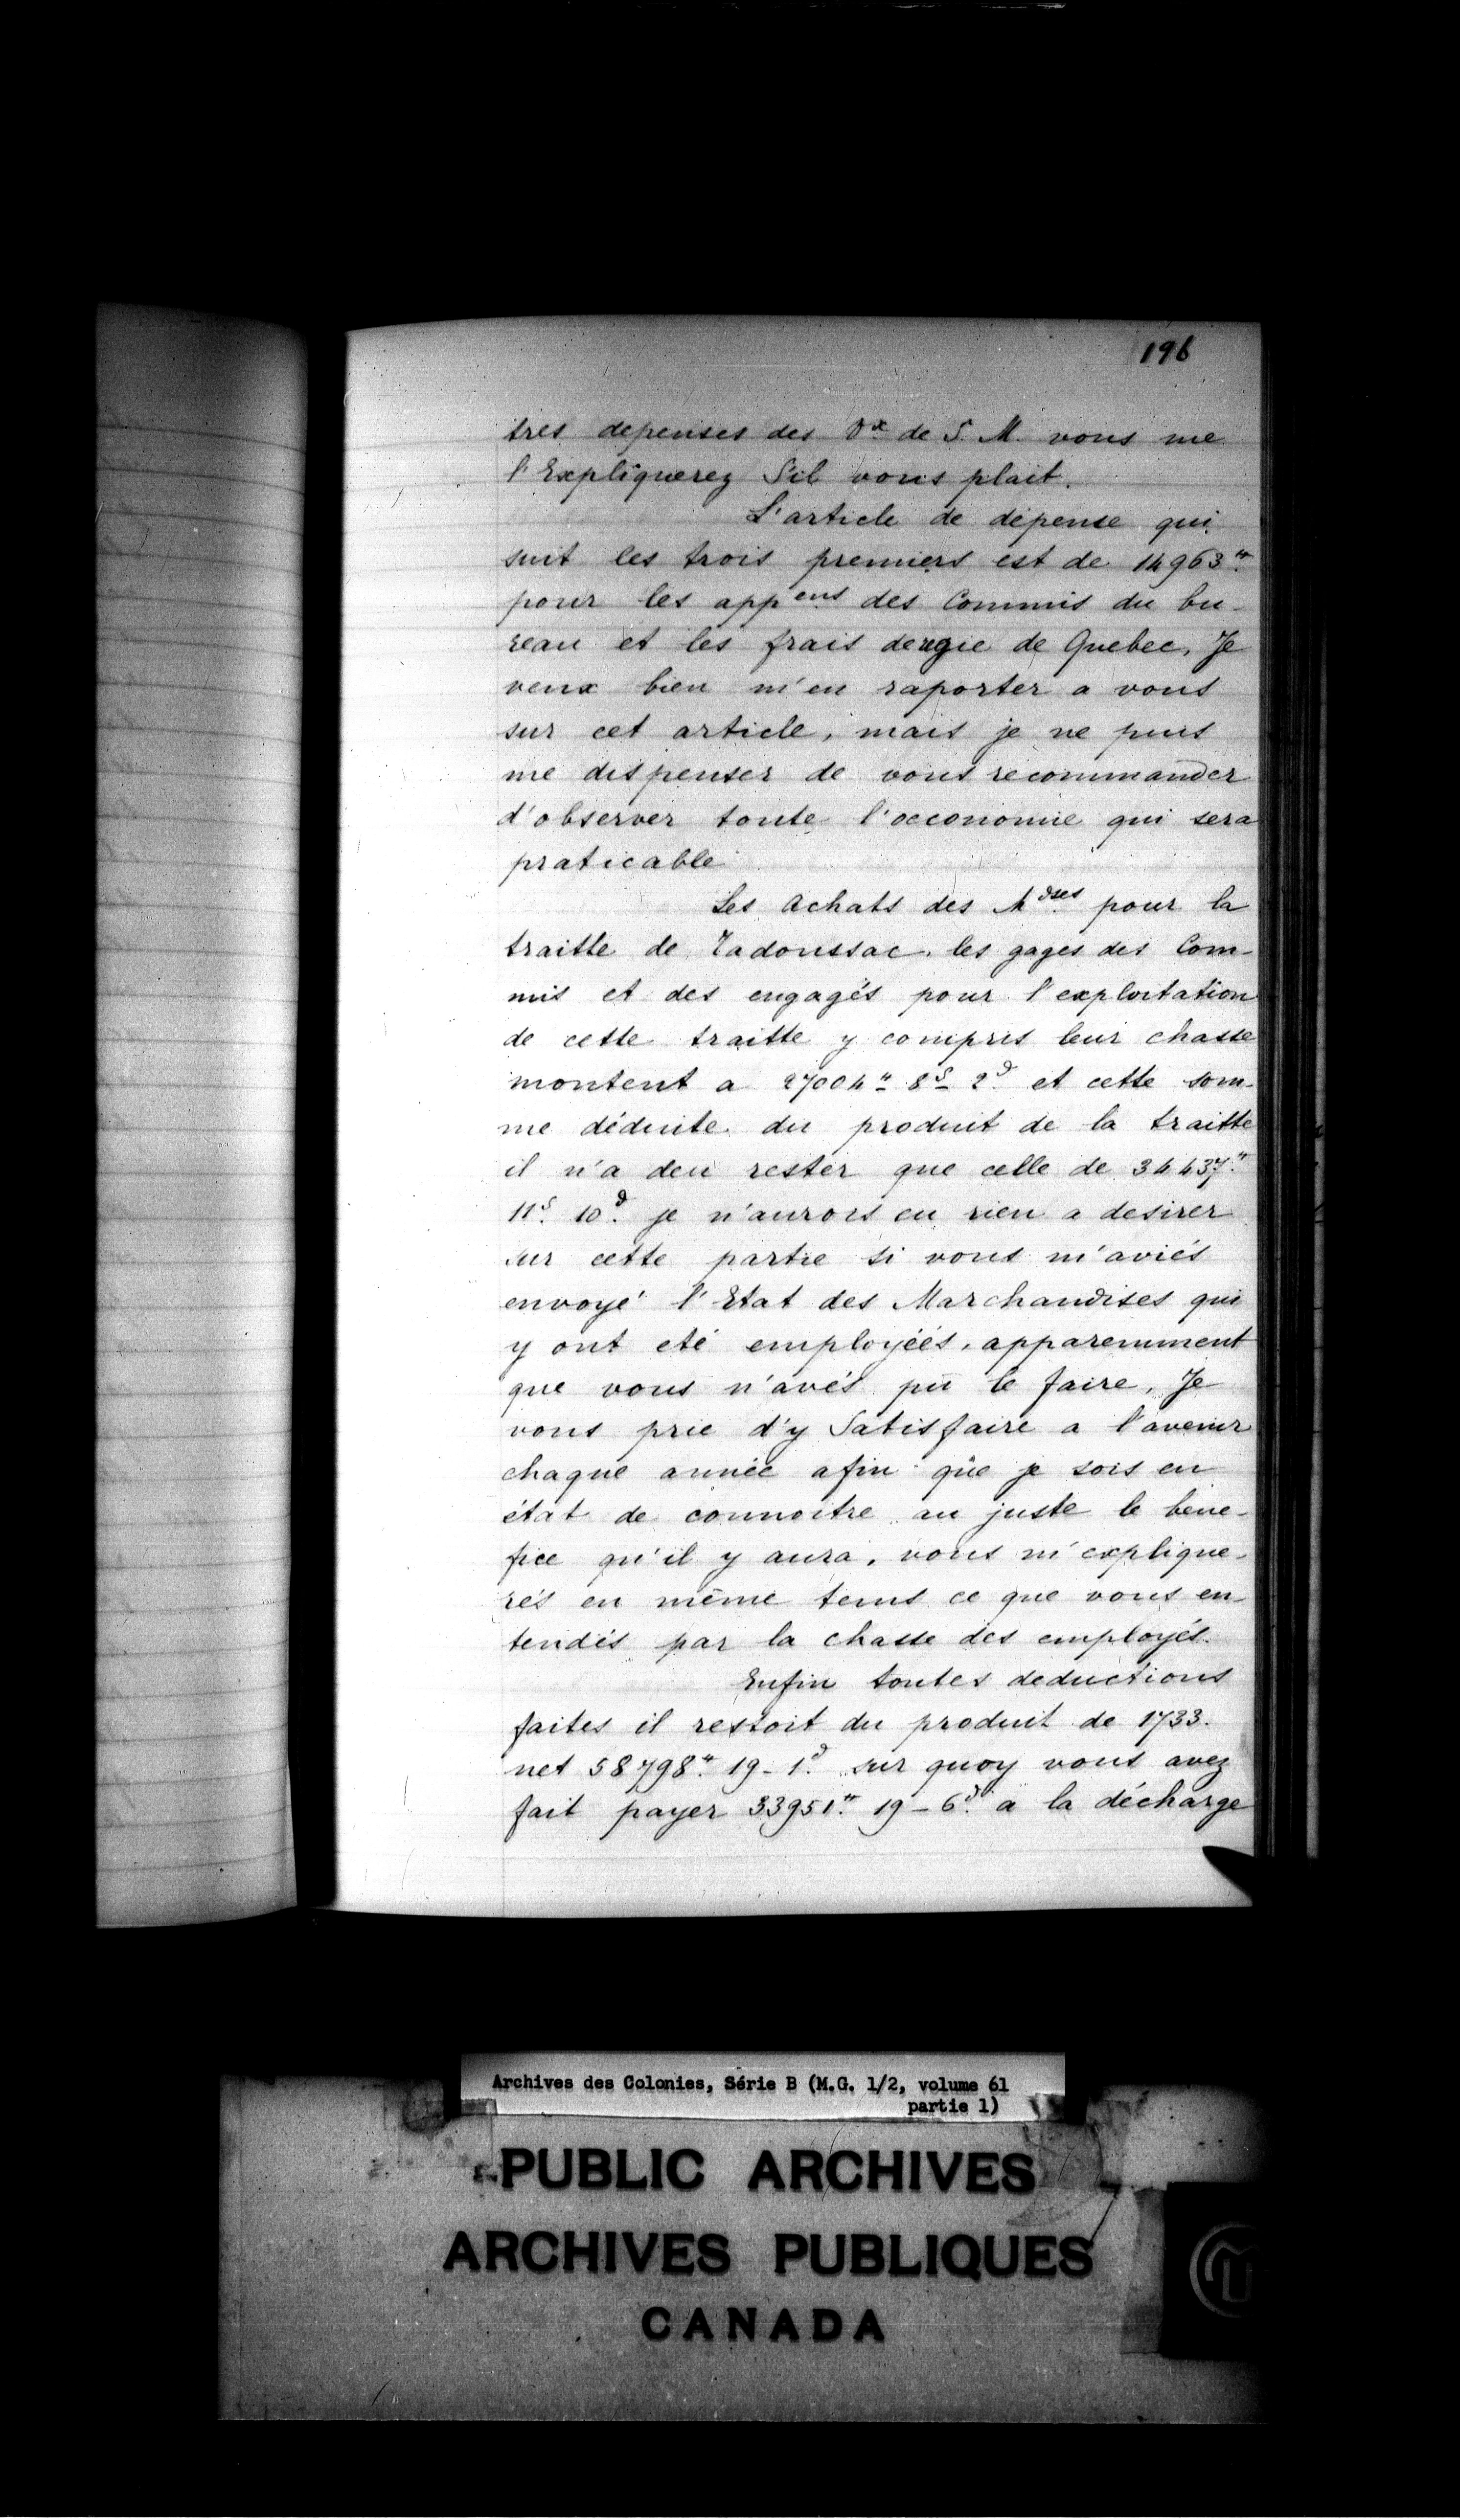 196
tres depenses des Vx de S. M. vous me
l'Expliquerez S'il vous plait.
L'article de dépense qui
suit les trois premiers est de 14963"
pour les appens des Commis du bu-
reau et les frais deregie de Quebec, Je
veux bien m'en raporter a vous
sur cet article, mais je ne puis
me dispenser de vous recommander
d'observer toute l'oeconomie qui sera
praticable
Les Achats des Mdses pour la
traitte de Tadoussac, les gages des Com-
mis et des engagés pour l'exploitation
de cette traitte y compris leur chasse
montent a 27004" 8s 2d et cette som-
me déduite du produit de la traitte
il n'a deu rester que celle de 34437"
11s. 10d. je n'aurois eu rien a desirer
sur cette partie si vous m'aviés
envoyé l'Etat des Marchandises qui
y ont eté employéés, apparemment
que vous n'avés pû le faire, Je
vous prie d'y Satisfaire a l'avenir
chaque année afin que je sois en
état de connoitre au juste le bene-
fice qu'il y aura, vous m'explique-
rés en même tems ce que vous en-
tendés par la chasse des employés.
Enfin toutes deductions
faites il restoit du produit de 1733.
net 58798" 19 - 1d. sur quoy vous avez
fait payer 33951" 19 - 6d. a la décharge
Archives des Colonies, Série B (M.G. 1/2, volume 61
partie 1)
PUBLIC ARCHIVES
ARCHIVES PUBLIQUES
CANADA